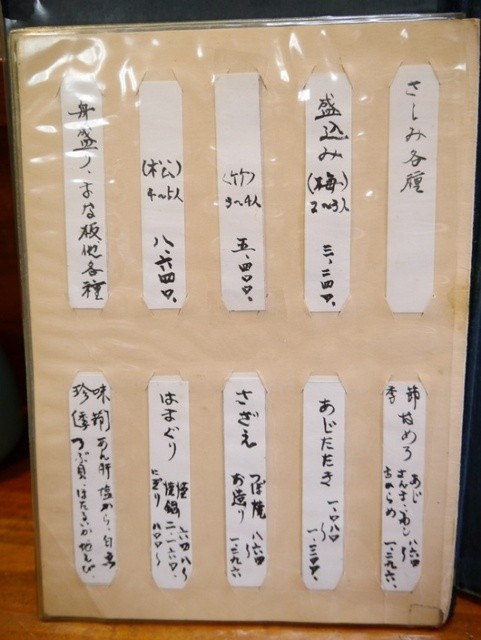 さしみ各種
盛込み(梅)
2〜3人
三、二四〇、
(竹)
3〜4人
五、四〇〇、
(松)
4〜5人
八、六四〇、
舟盛り、まな板他各種
季節なめろ
あじ 八六四
さんま、いわし 〜
一、二九六、
あじたたき
一、〇八〇
〜
一、三〇〇、
さざえ
つぼ焼 八六四
お造り 〜
一、二九六
はまぐり
焼鍋 二、一六〇、
にぎり 八〇〇〜
珍味
あん肝、塩から
つぶ貝、ほたるいか